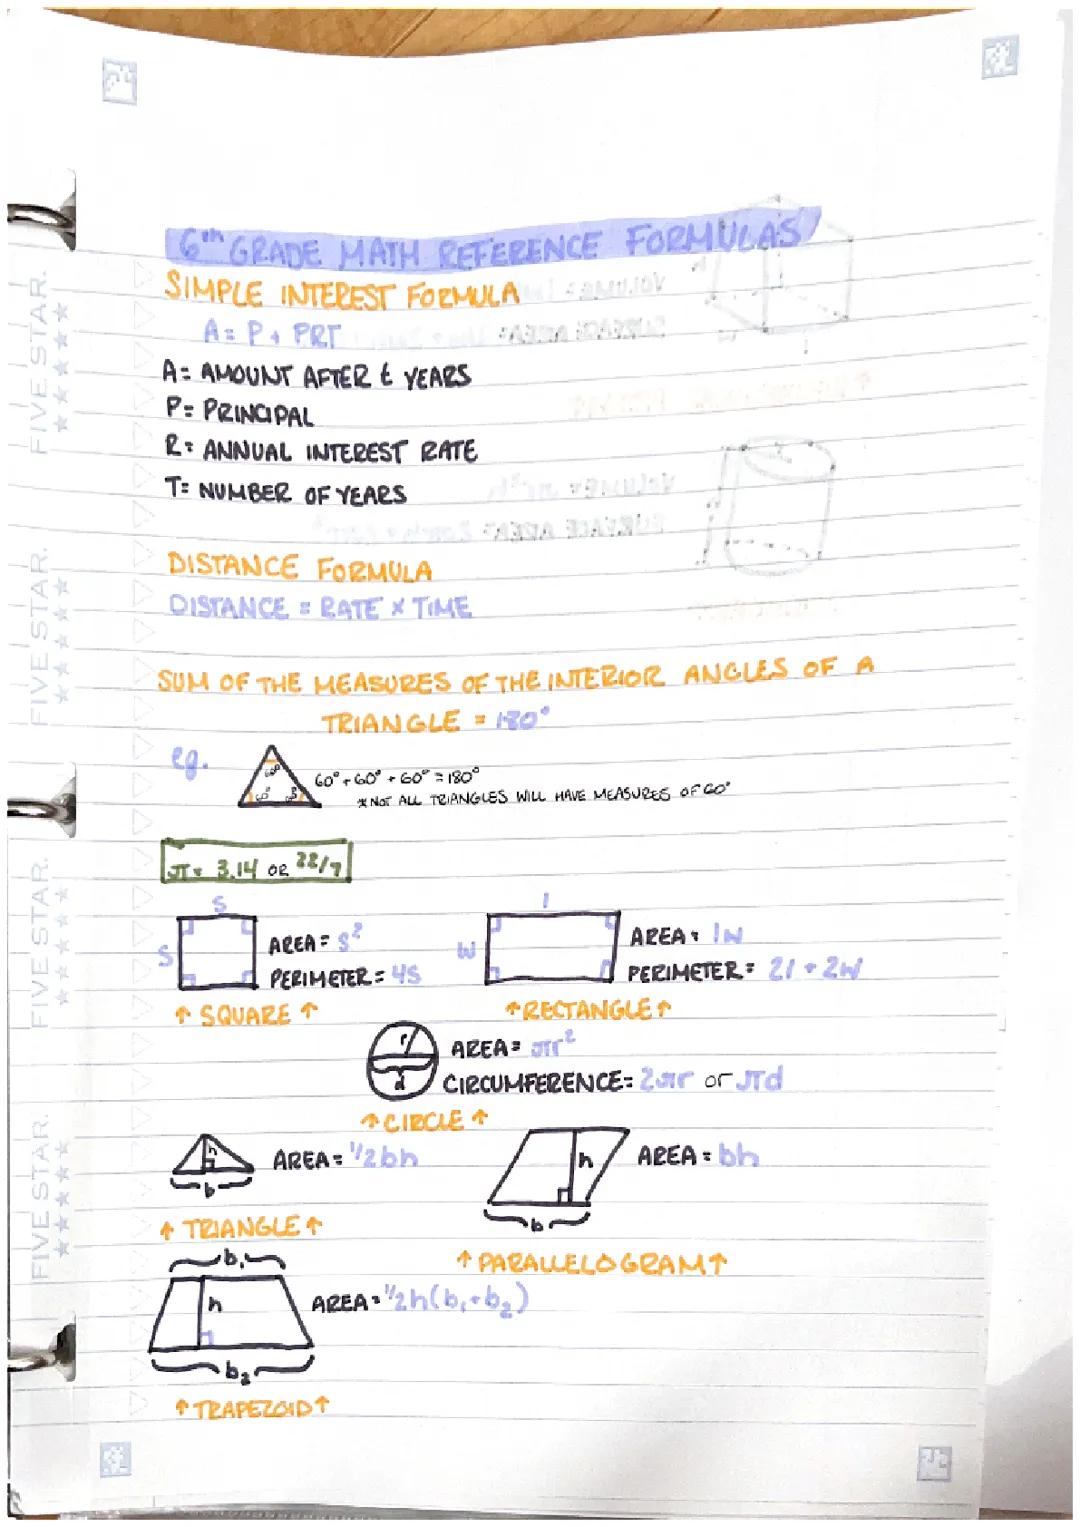 6th GRADE MATH REFERENCE FORMULAS
SIMPLE INTEREST FORMULA
A = P + PRT
A = AMOUNT AFTER t YEARS
P = PRINCIPAL
R = ANNUAL INTEREST RATE
T = NUMBER OF YEARS
DISTANCE FORMULA
DISTANCE = RATE × TIME
SUM OF THE MEASURES OF THE INTERIOR ANGLES OF A
TRIANGLE = 180°
eg.
60°
60° 60°
60° + 60° + 60° = 180°
* NOT ALL TRIANGLES WILL HAVE MEASURES OF 60°
π = 3.14 OR 22/7
S
S
AREA = S²
PERIMETER = 4S
↑ SQUARE ↑
l
W
AREA = lW
PERIMETER = 2l + 2W
↑ RECTANGLE ↑
r
d
AREA = πr²
CIRCUMFERENCE = 2πr or πd
↑ CIRCLE ↑
h
b
AREA = 1/2bh
↑ TRIANGLE ↑
h
b
AREA = bh
↑ PARALLELOGRAM ↑
b₁
h
b₂
AREA = 1/2h(b₁+b₂)
↑ TRAPEZOID ↑
FIVE STAR.
FIVE STAR.
FIVE STAR.
FIVE STAR.